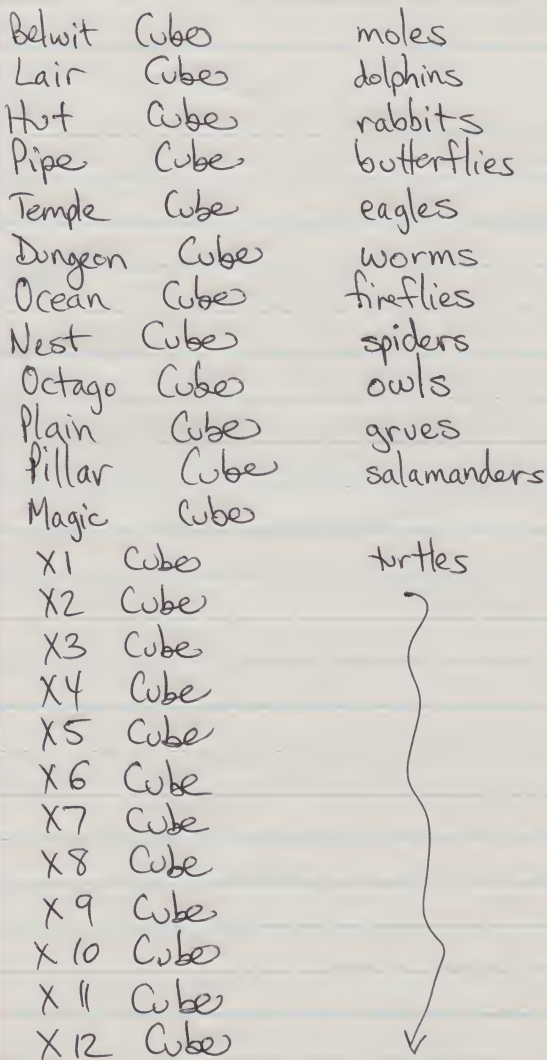 Belwit Cube moles
Lair Cube dolphins
Hut Cube rabbits
Pipe Cube butterflies
Temple Cube eagles
Dungeon Cube worms
Ocean Cube fireflies
Nest Cube spiders
Octago Cube owls
Plain Cube grues
Pillar Cube salamanders
Magic Cube
X1 Cube turtles
X2 Cube
X3 Cube
X4 Cube
X5 Cube
X6 Cube
X7 Cube
X8 Cube
X9 Cube
X10 Cube
X11 Cube
X12 Cube